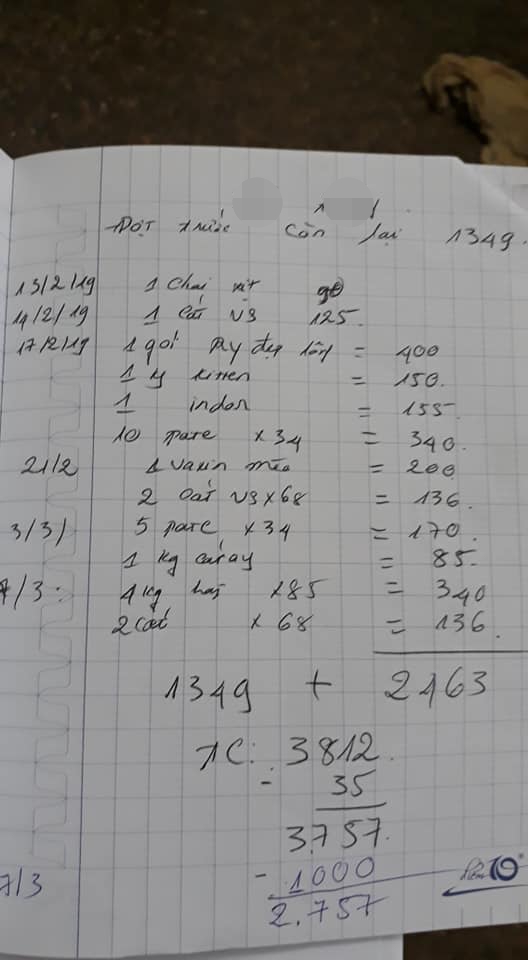 Đợt trước còn lại 1349.
13/2/19 1 chai xịt 90
14/2/19 1 cát VS 125.
17/2/19 1 gói tẩy đẹp lông = 400
1 kitten = 150.
1 indor = 155.
10 pate x34 = 340.
21/2 1 vaxin mèo = 200
2 cát VS x68 = 136.
3/3) 5 pate x34 = 170.
1 kg catxay = 85.
7/3: 4 kg hạt x85 = 340
2 cát x 68 = 136.
1349 + 2463
TC: 3812.
- 35
3.757.
7/3 - 1000
2.757
Điểm 10